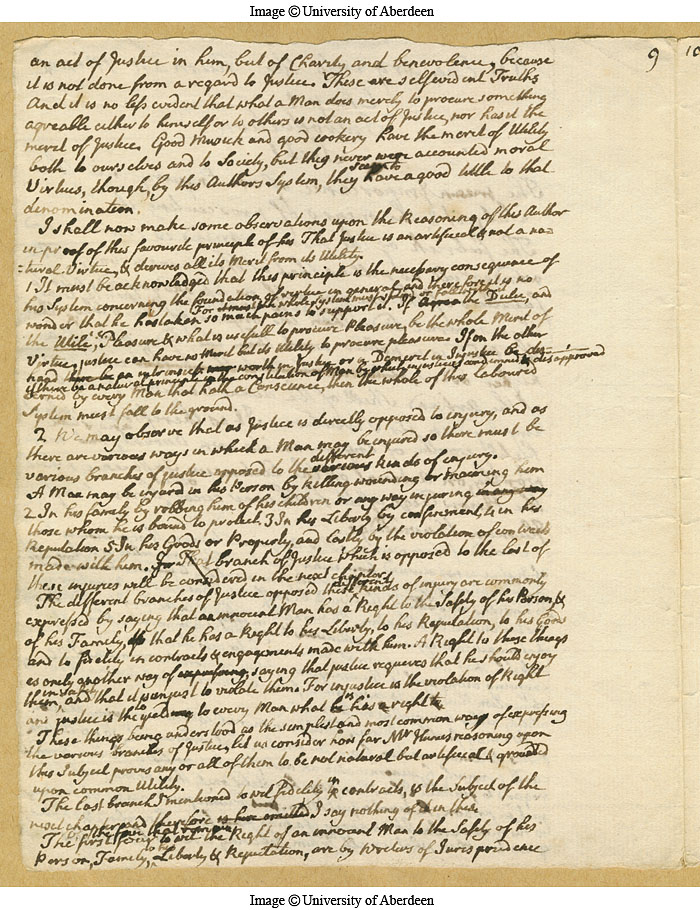 Image © University of Aberdeen
9
10
an act of Justice in him, but of Charity and benevolence, because
it is not done from a regard to Justice. These are selfevident Truths
And it is no less evident that what a Man does merely to procure something
agreable either to himself or to others is not an act of Justice, nor has it the
merit of Justice. Good Musick and good cookery have the merit of Utility
both to ourselves and to Society, but they never were accounted moral
seem to
Virtues, though, by this Authors System, they have a good title to that
denomination.
I shall now make some observations upon the Reasoning of this Author
in proof of this favourite principle of his That Justice is an artificial & not a na-
-tural Virtue, & derives all its Merit from its Utility.
1 It must be acknowledged that this principle is the necessary consequence of
his System concerning the foundation of virtue in general, and therefore it is no
wonder that he has taken so much pains to support it.
If the Dulce, and
the Utile, Pleasure & what is usefull to procure Pleasure, be the whole Merit of
Virtue, justice can have no Merit but its Utility to procure pleasure. If on the other
hand there be an intrinsick worth in Justice or a Demerit in Injustice
if there be a natural principle in the constitution of Man by which injustice is condemned & disapproved
by every Man that hath a Conscience, then the whole of this laboured
System must fall to the ground.
2 We may observe that as Justice is directly opposed to injury, and as
there are various ways in which a Man may be injured so there must be
different
various branches of justice opposed to the various kinds of injury.
A Man may be injured in his Person by killing wounding or maiming him
2 In his family by robbing him of his children or any way injuring
those whom he is bound to protect. 3 In his Liberty by confinement, 4 in his
Reputation 5 In his Goods or Property, and lastly by the violation of contracts
made with him. That branch of Justice which is opposed to the last of
these injuries will be considered in the next chapter.
different
The different branches of Justice opposed these kinds of injury are commonly
expressed by saying that an innocent Man has a Right to the Safety of his Person, &
of his Family, that he has a Right to his Liberty, to his Reputation, to his Goods
and to fidelity in contracts & engagements made with him. A Right to these things
is onely another way of expressing, saying that justice requires that he should enjoy
in safety
them, and that it is unjust to violate them. For injustice is the violation of Right
and justice is to yield to every Man what is his right.
These things being understood as the simplest and most common way of expressing
the various branches of Justice, let us consider how far Mr Humes reasoning upon
this Subject proves any or all of them to be not natural but artificial & grounded
upon common Utility.
The last branch mentioned to wit fidelity in contracts, is the Subject of the
next chapter and therefore I say nothing of it in this
The first four to wit the Right of an innocent Man to the Safety of his
Person, Family, to his Liberty & Reputation, are by Writers of Jurisprudence
Image © University of Aberdeen